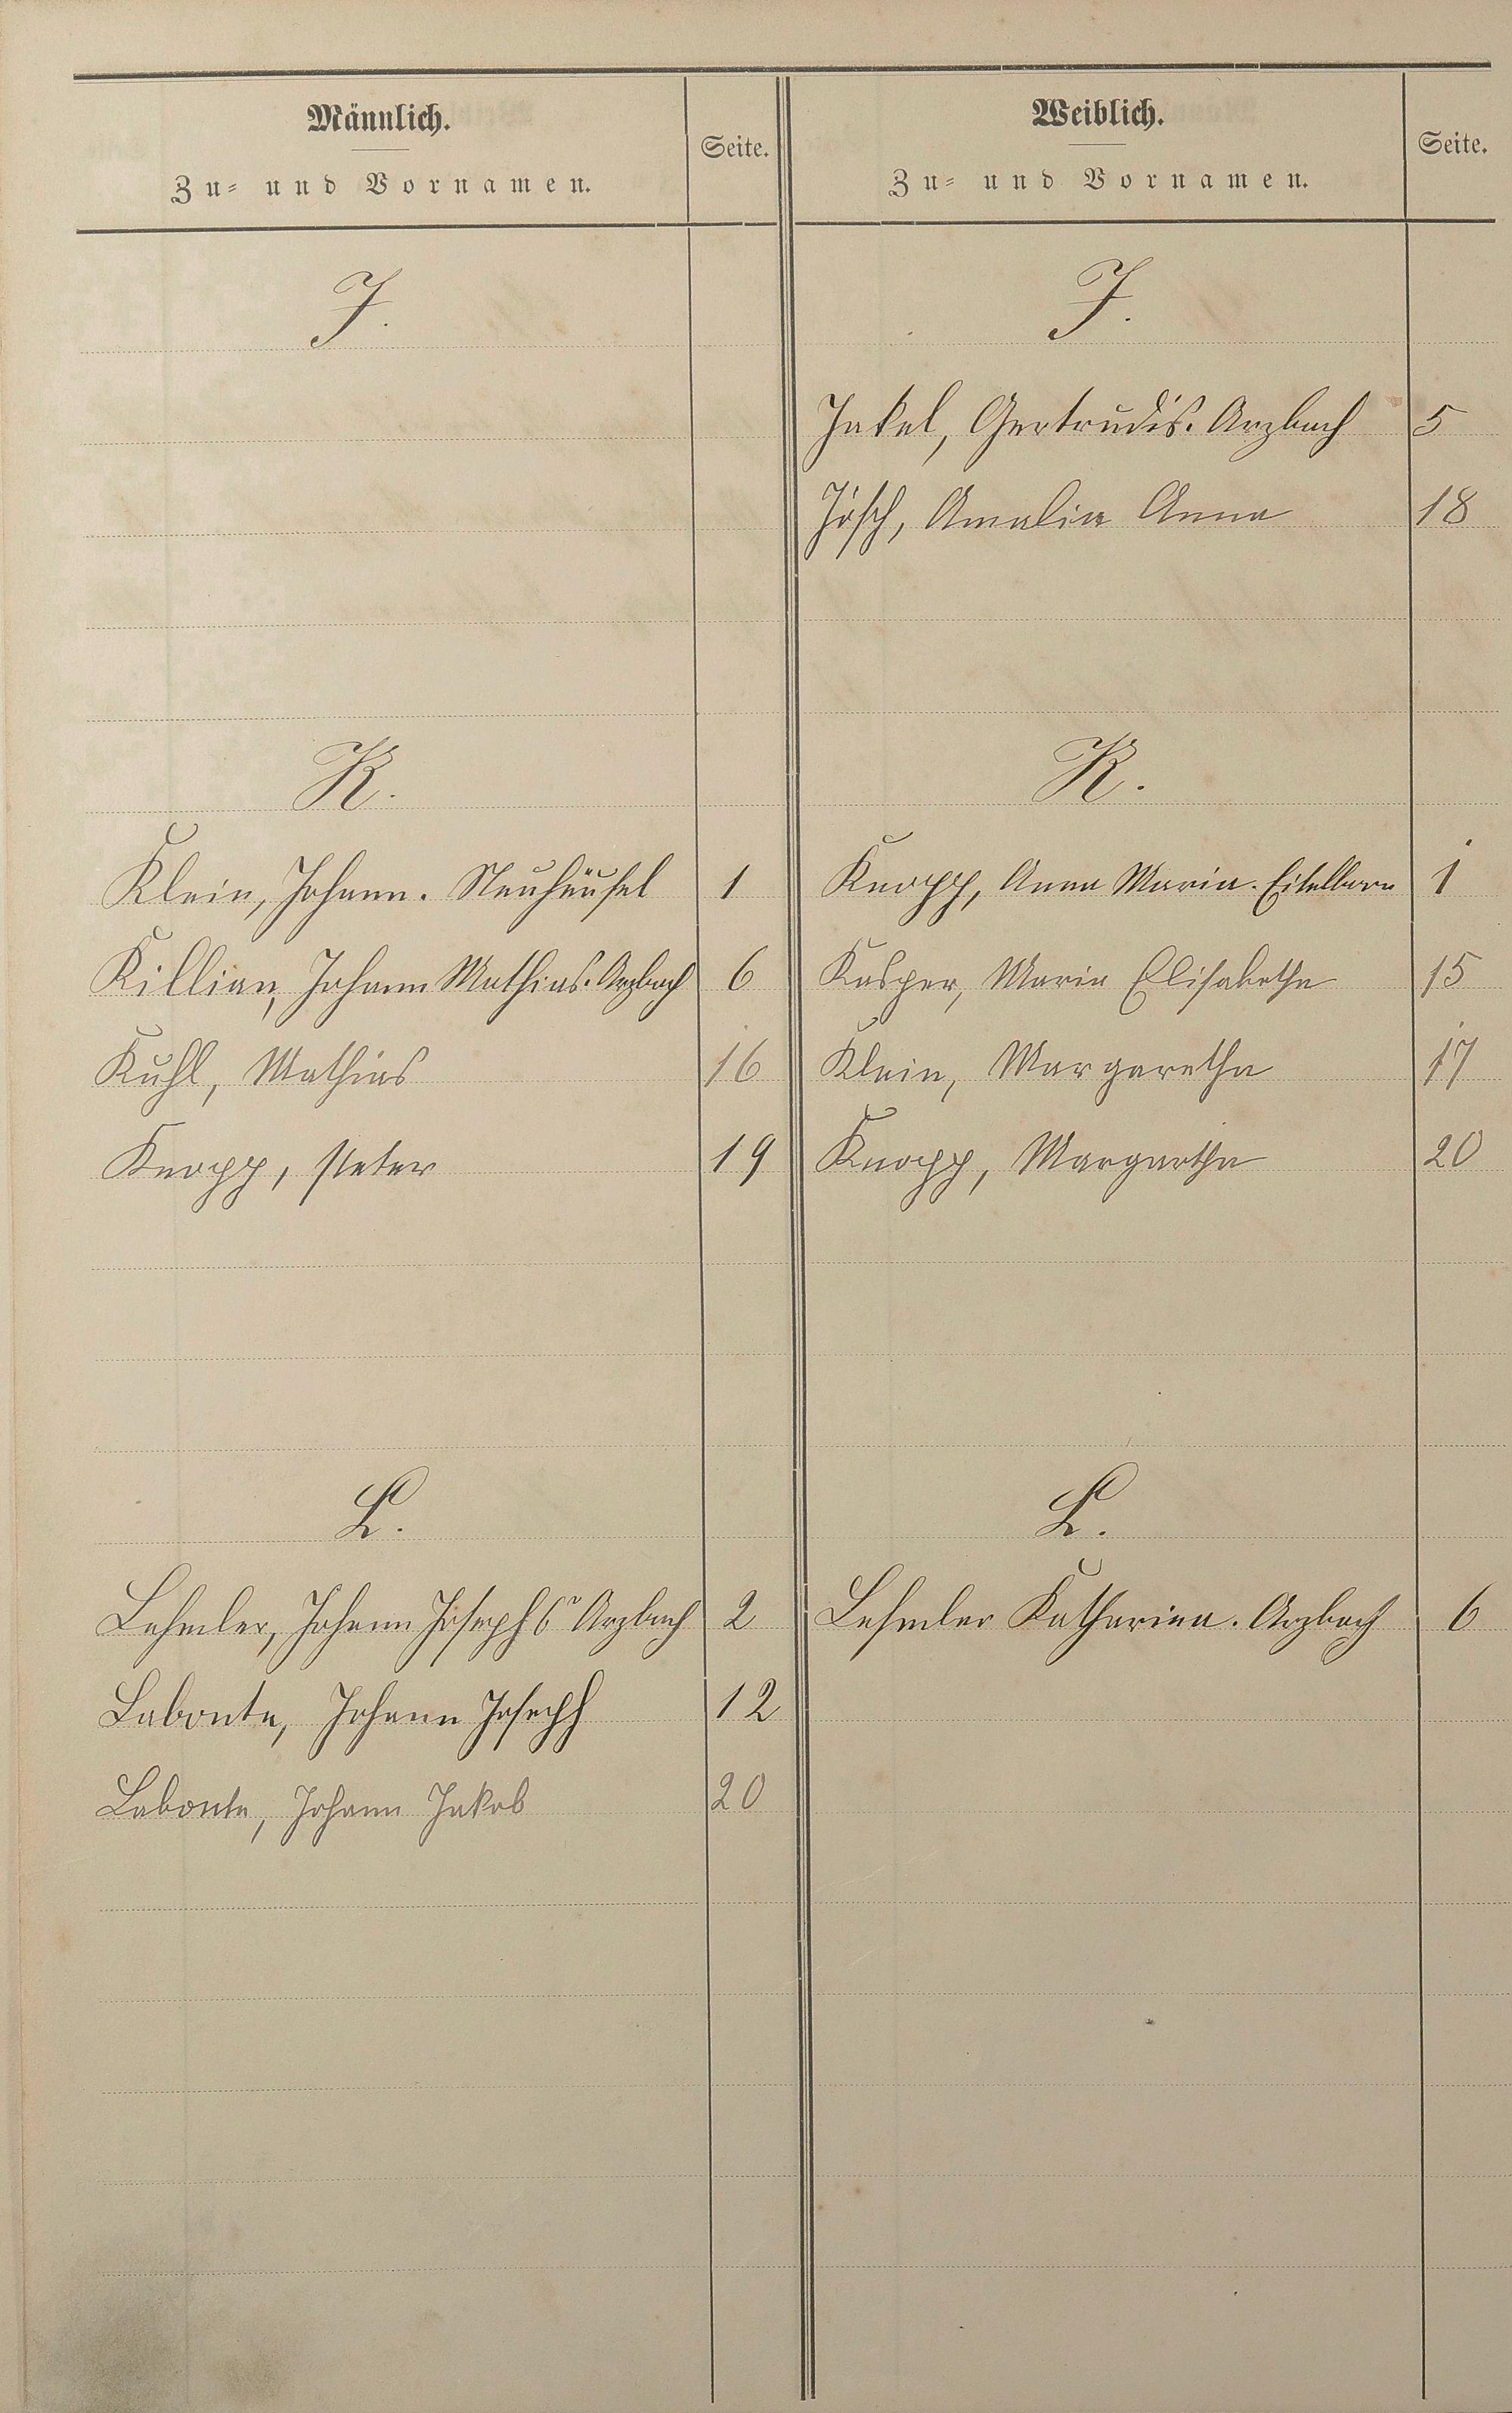 Männlich.
Zu- und Vornamen.
Seite.
Weiblich.
Zu- und Vornamen.
Seite.
J.
J.
Jakel, Gertrudis. Arzbach 5
Jösch, Amalia Anna 18
K.
K.
Klein, Johann. Neuhäusel 1
Knopp, Anna Maria. Eitelborn 1
Killian, Johann Mathias. Arzbach 6
Kasper, Maria Elisabetha 15
Kuhl, Mathias 16
Klein, Margaretha 17
Knopp, Peter 19
Knopp, Margartha 20
L.
L.
Lehmler, Johann Joseph 6r Arzbach 2
Lehmler Katharina. Arzbach 6
Labonte, Johann Joseph 12
Labonte, Johann Jakob 20